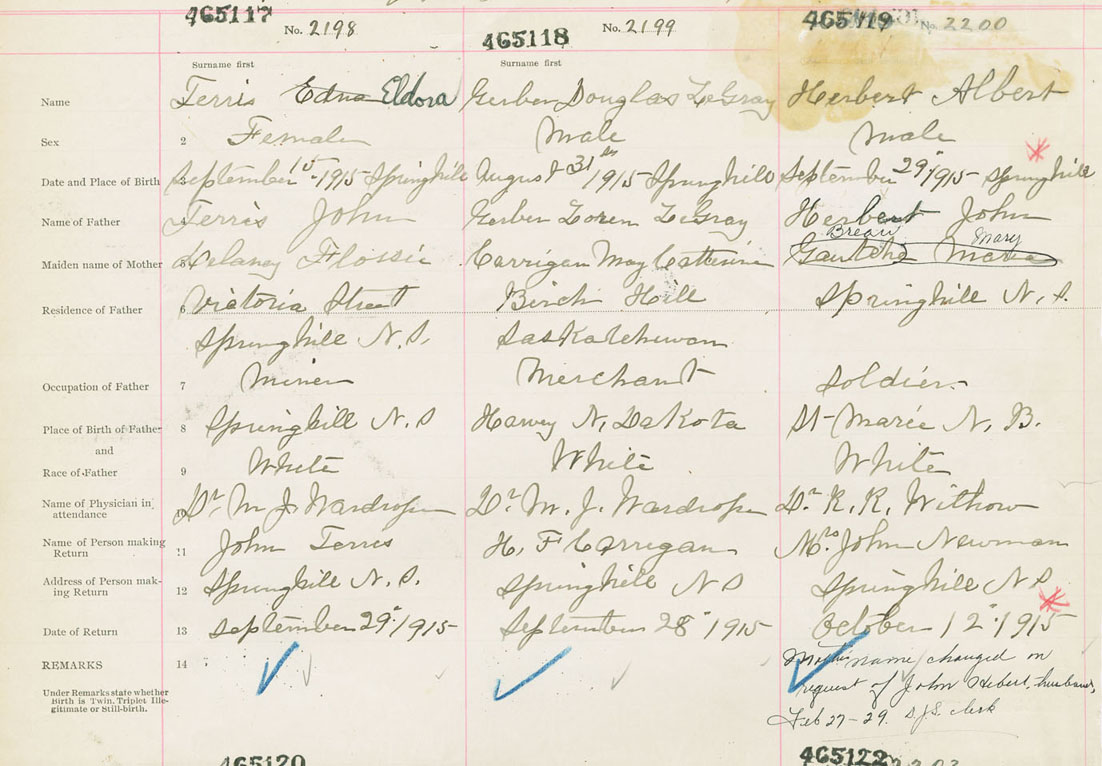 465117 No. 2198 465118 No. 2199 465119 No. 2200
Surname first Surname first
Name Terris Edna Eldora Gerber Douglas LeGray Herbert Albert
Sex 2 Female Male Male
Date and Place of Birth September 15 1915 Springhill August 31st 1915 Springhill September 29" 1915 Springhill
Name of Father 4 Terris John Gerber Loren LeGray Herbert John
Breau Mary
Maiden name of Mother 5 Delaney Flossie Carrigan May Catherine Maria
Residence of Father 6 Victoria Street Birch Hill Springhill N.S.
Springhill N.S. Saskatchewan
Occupation of Father 7 Miner Merchant Soldier
Place of Birth of Father 8 Springhill N.S Harvey N. Dakota St-Marie N.B.
and
Race of Father 9 White White White
Name of Physician in attendance 10 Dr M J Wardrope Dr M. J. Wardrope Dr. R. R. Withrow
Name of Person making Return 11 John Terris H. F Carrigan Mrs John Newman
Address of Person making Return 12 Springhill N.S. Springhill N S Springhill N S
Date of Return 13 September 29" 1915 September 28" 1915 October 12" 1915
REMARKS 14 Mother's name changed on
Under Remarks state whether Birth is Twin, Triplet Illegitimate or Still-birth.
request of John Hebert, husband,
Feb 27-29. S.J.S. clerk
465120 465122 2203